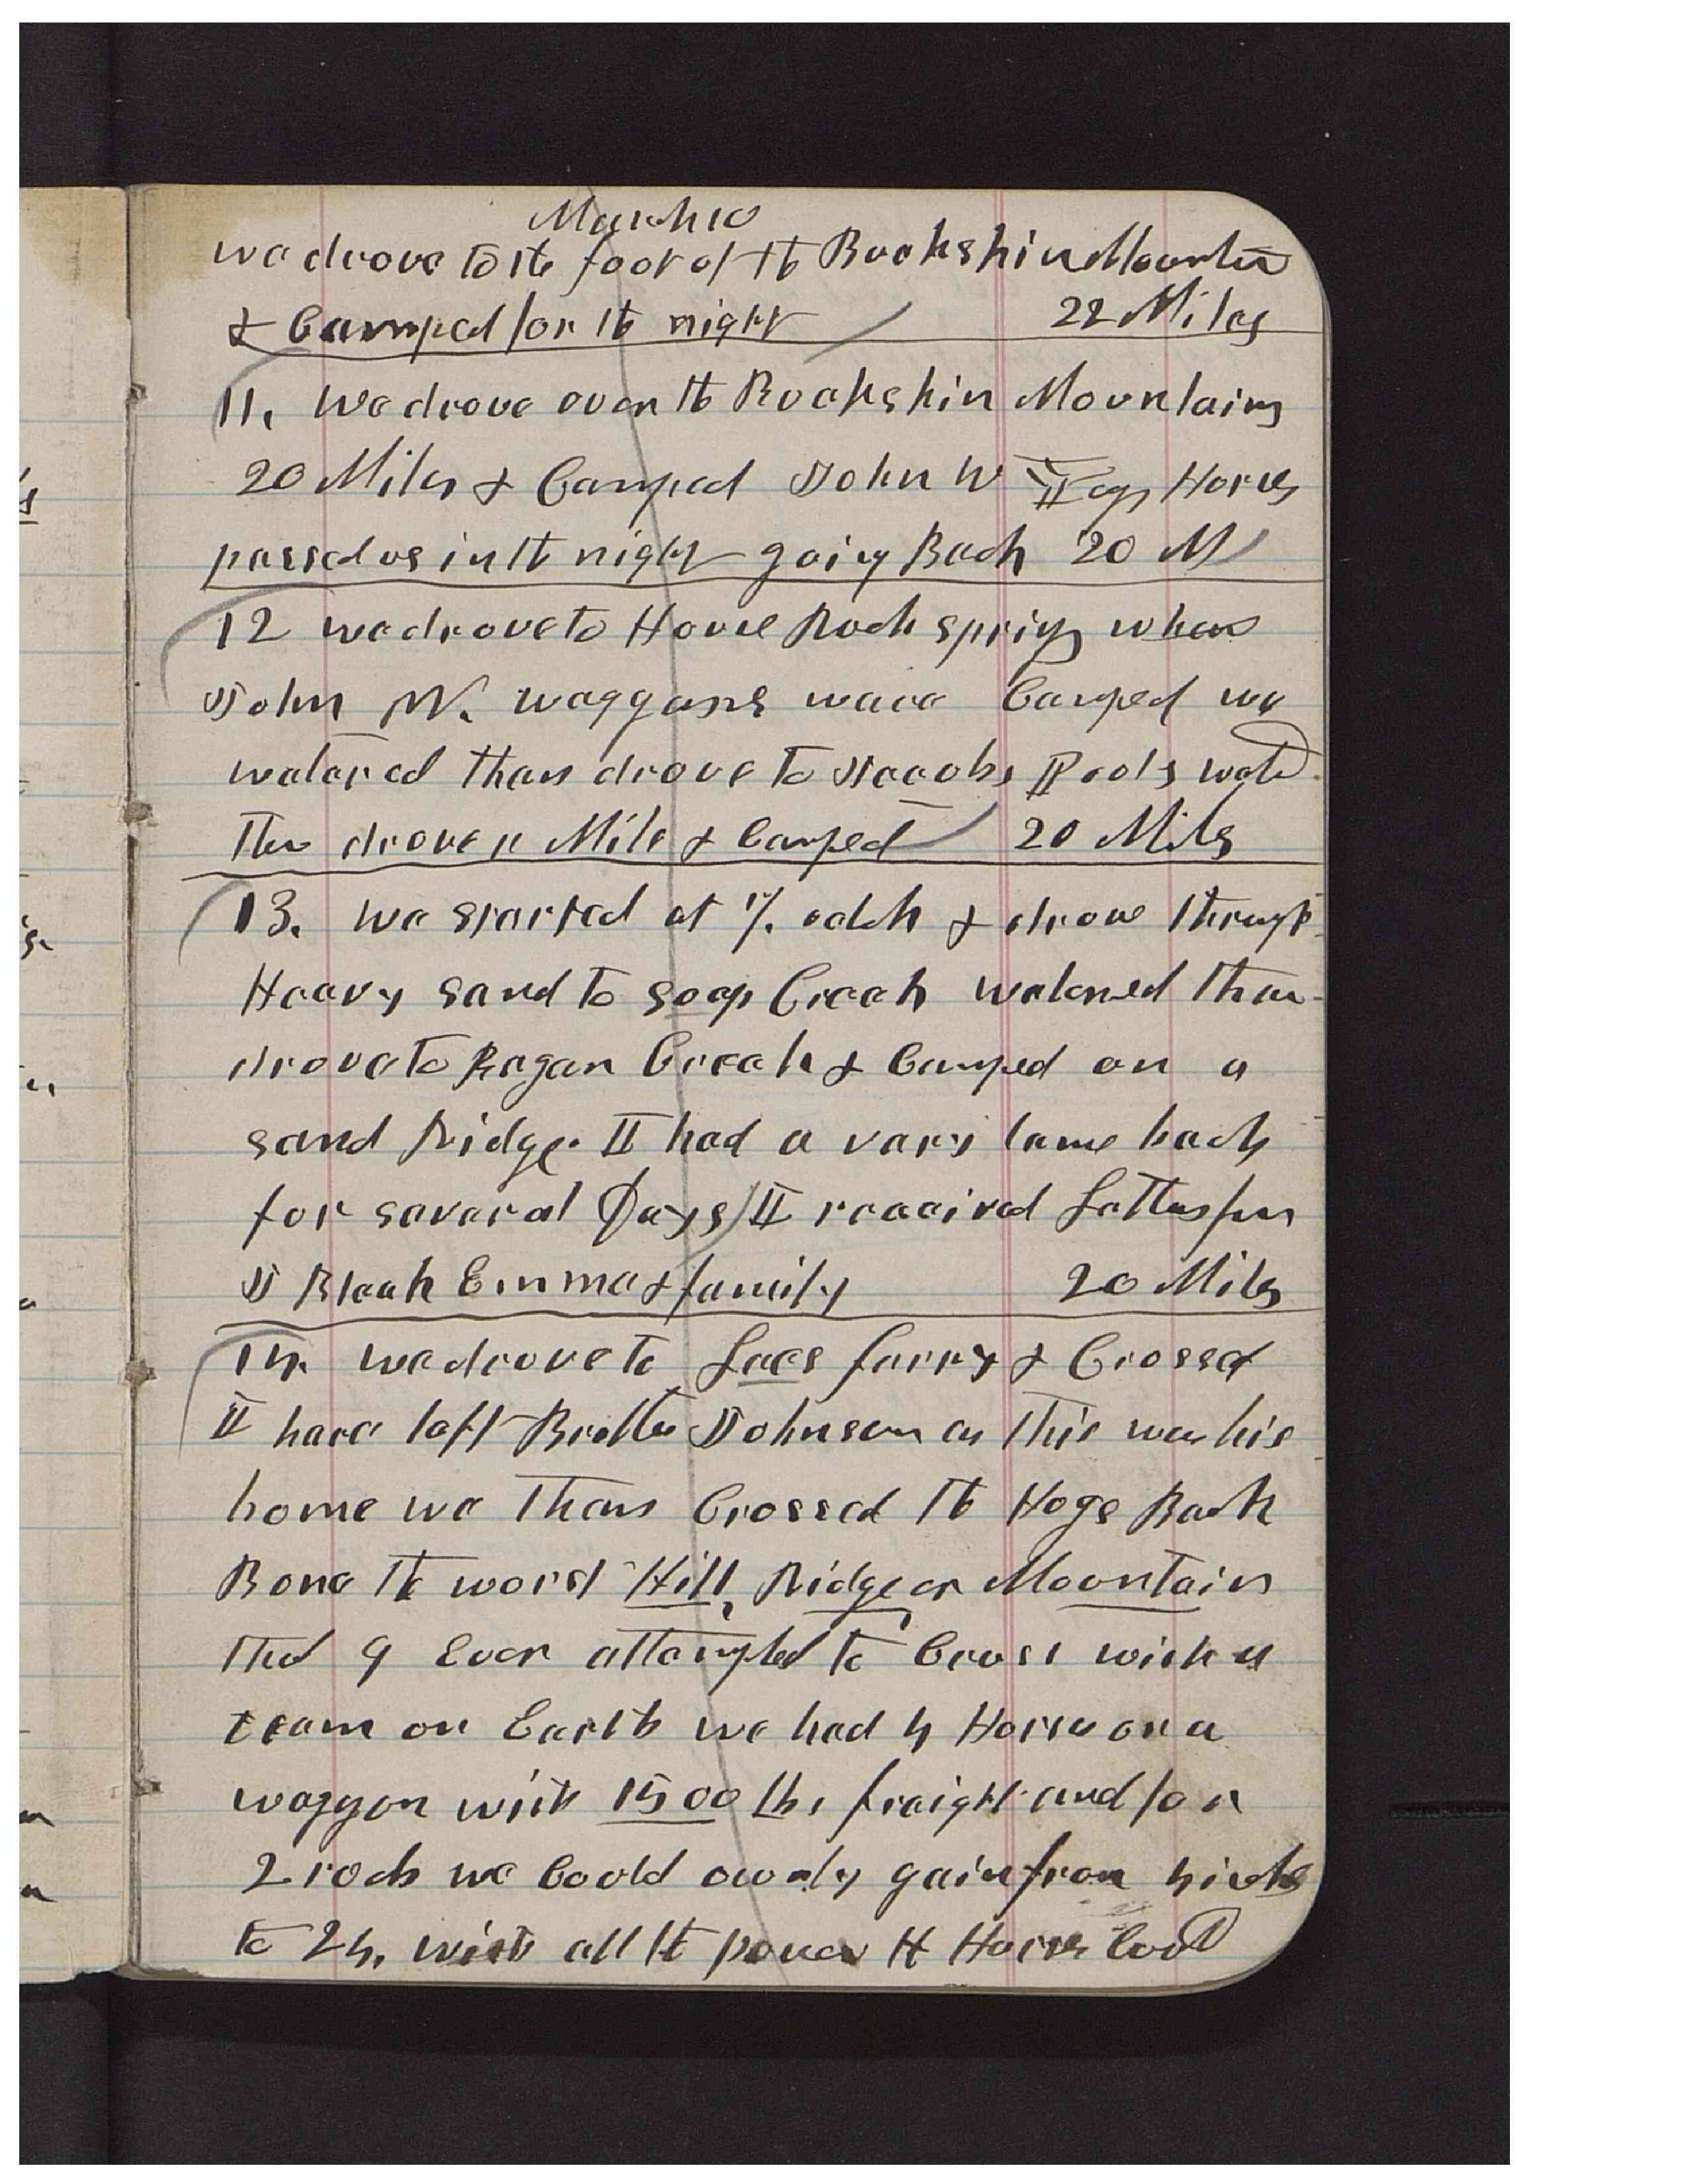 March 10
we drove to the foot of the Buckskin Mountain
& Camped for the night 22 Miles
11. We drove over the Buckskin Mountains
20 Miles & Camped John W Horses
passed us in the night going Back 20 M
12 we drove to House Rock spring whare
John W. waggans ware Camped we
watered than drove to Jacobs Pools waterd
Then drove a Mile & Camped 20 Miles
13. We started at 7. oclok & drove through
Heavy sand to Soap Creek watered then
drove to Ragan Creek & Camped on a
sand Ridge. I had a very lame back
for several Days I received Letters from
J Bleak Emma & family 20 Miles
14. we drove to Lees ferry & Crossed
I here left Brother Johnson as this was his
home we then Crossed the Hogs Back
Bone the worst Hill, Ridge or Mountain
that I Ever attempted to Cross with a
team on Earth we had 4 Horses on a
waggon with 1500 lbs freight and for
2 rods we Could ownly gain from inches
to 24. with all the power 4 Horses Could